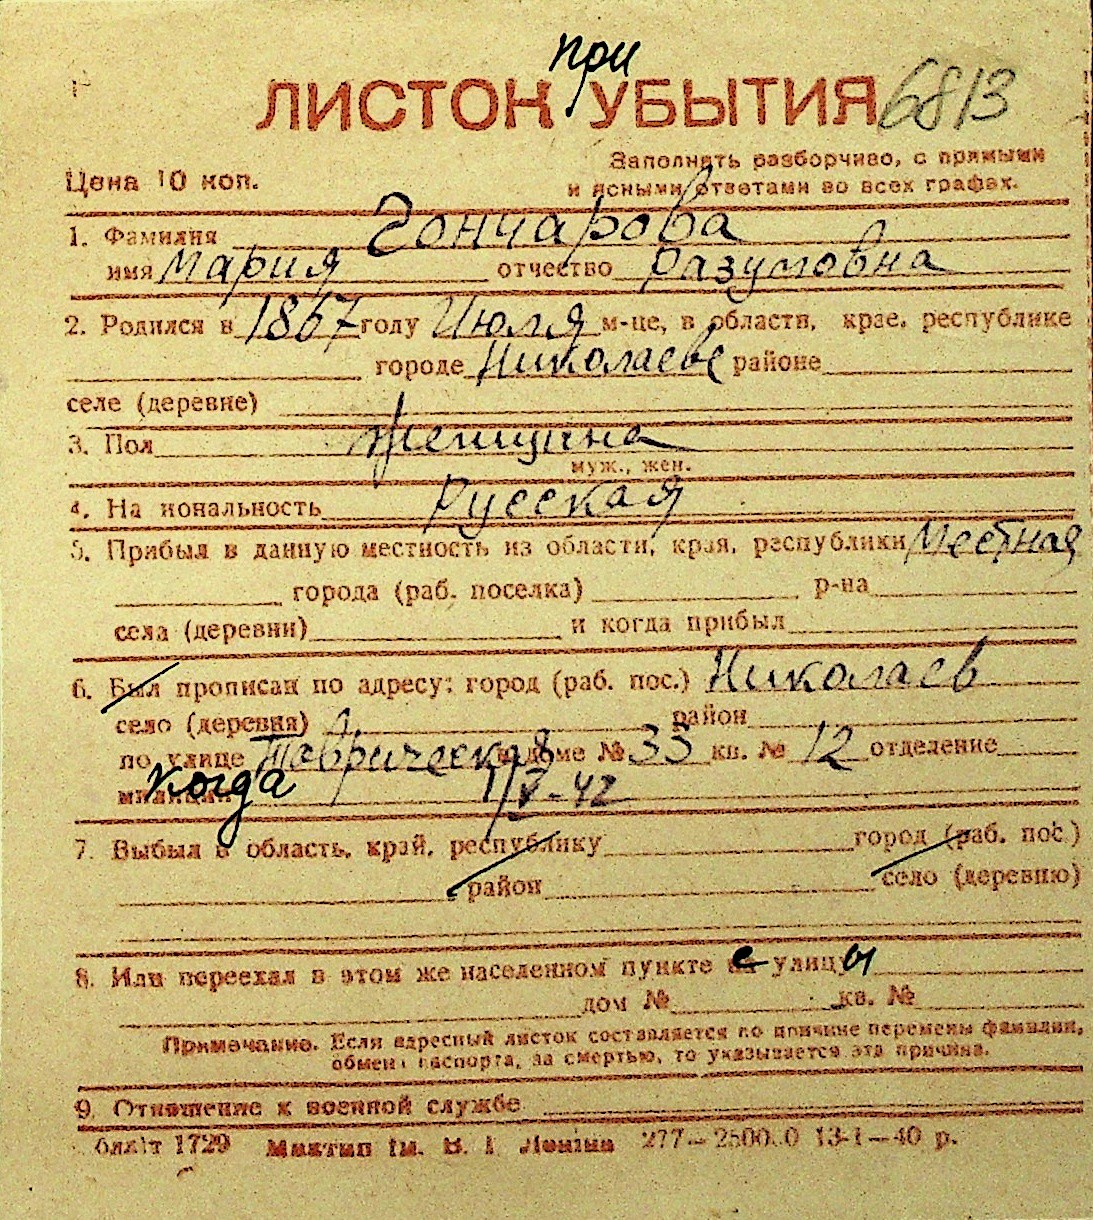 при
ЛИСТОК УБЫТИЯ 6813
Цена 10 коп.
Заполнять разборчиво, с прямыми
и ясными ответами во всех графах.
1. Фамилия Гончарова
имя Мария отчество Разумовна
2. Родился в 1867 году Июля м-це, в области, крае, республике
городе Николаеве районе
селе (деревне)
3. Пол женщина
муж., жен.
4. На иональность Русская
5. Прибыл в данную местность из области, края, республики Местная
города (раб. поселка) р-на
села (деревни) и когда прибыл
6. Был прописан по адресу: город (раб. пос.) Николаев
село (деревня) район
по улице Таврическая в доме № 33 кв. № 12 отделение
милиции когда 1/V-42
7. Выбыл в область, край, республику город (раб. пос.)
район село (деревню)
8. Или переехал в этом же населенном пункте с улицы
дом № кв. №
Примечание. Если адресный листок составляется по причине перемены фамилии,
обмена паспорта, за смертью, то указывается эта причина.
9. Отношение к военной службе
1729 Миктип ім. В. І Леніна 277— 13-1—40 р.